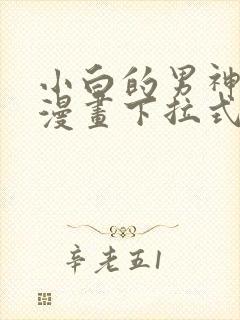 小白的男神
漫畫下拉式
辛老五1